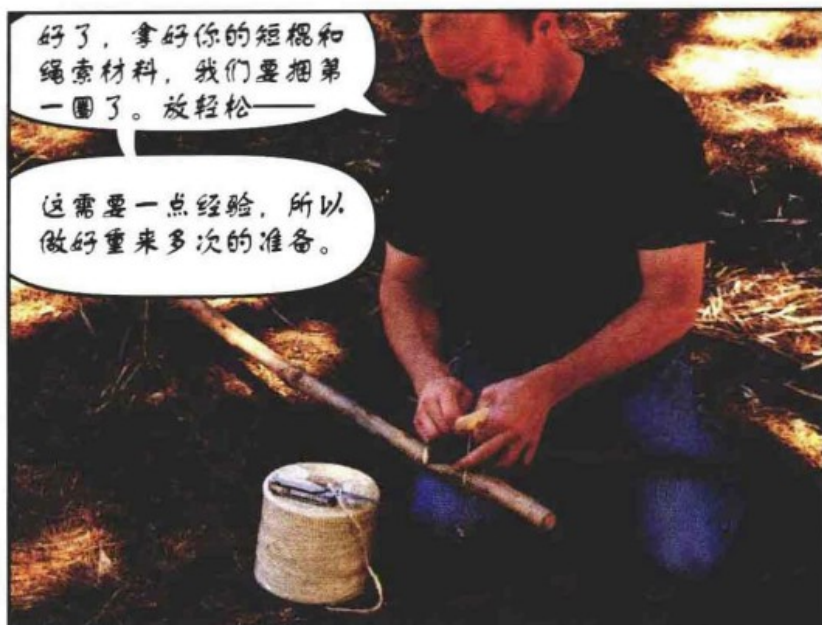 好了，拿好你的短棍和
绳索材料，我们要捆第
一圈了。放轻松——
这需要一点经验，所以
做好重来多次的准备。